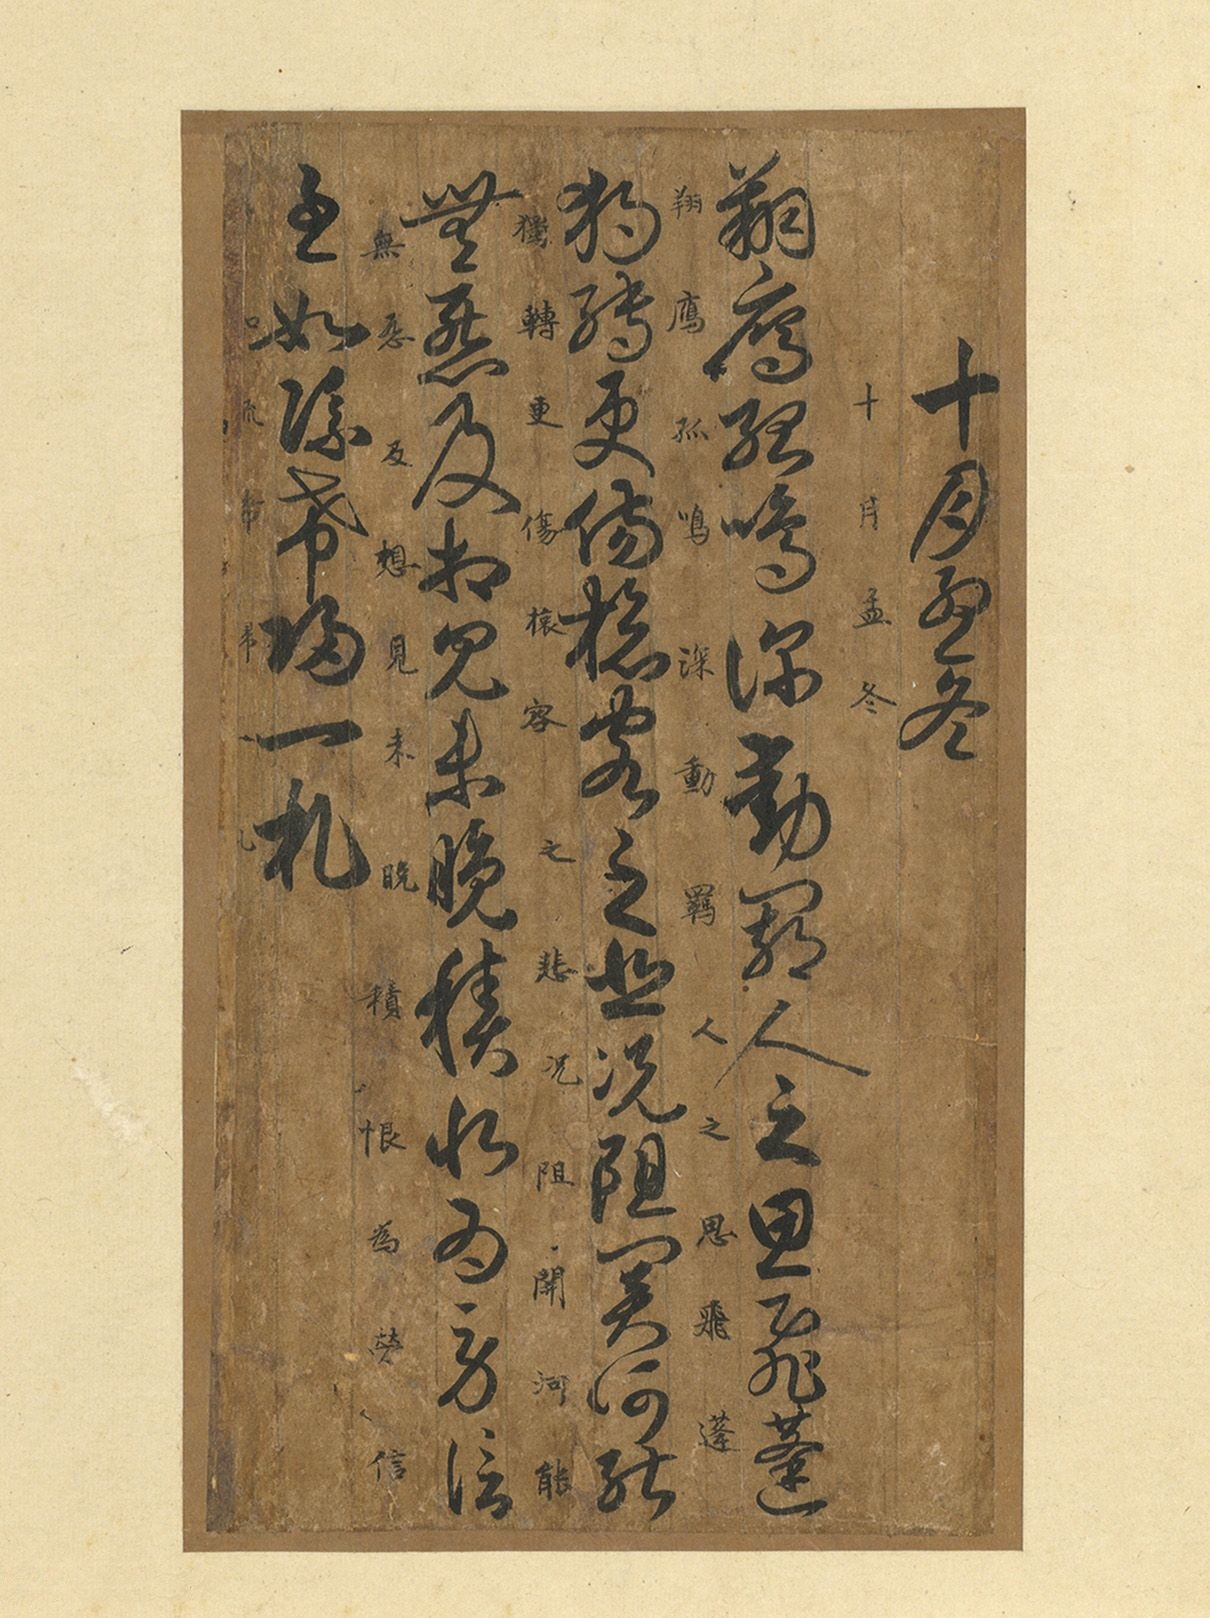 十月孟冬
十月孟冬
翔鴈孤鳴深動羈人之思飛蓬
翔鴈孤鳴深動羈人之思飛蓬
獨轉更傷懷客之悲況阻關河能
獨轉更傷懷客之悲况阻開河能
無惡及相見未晚積恨為勞信
無惡及想見未晚積恨為勞信
至如流希歸一札
流希